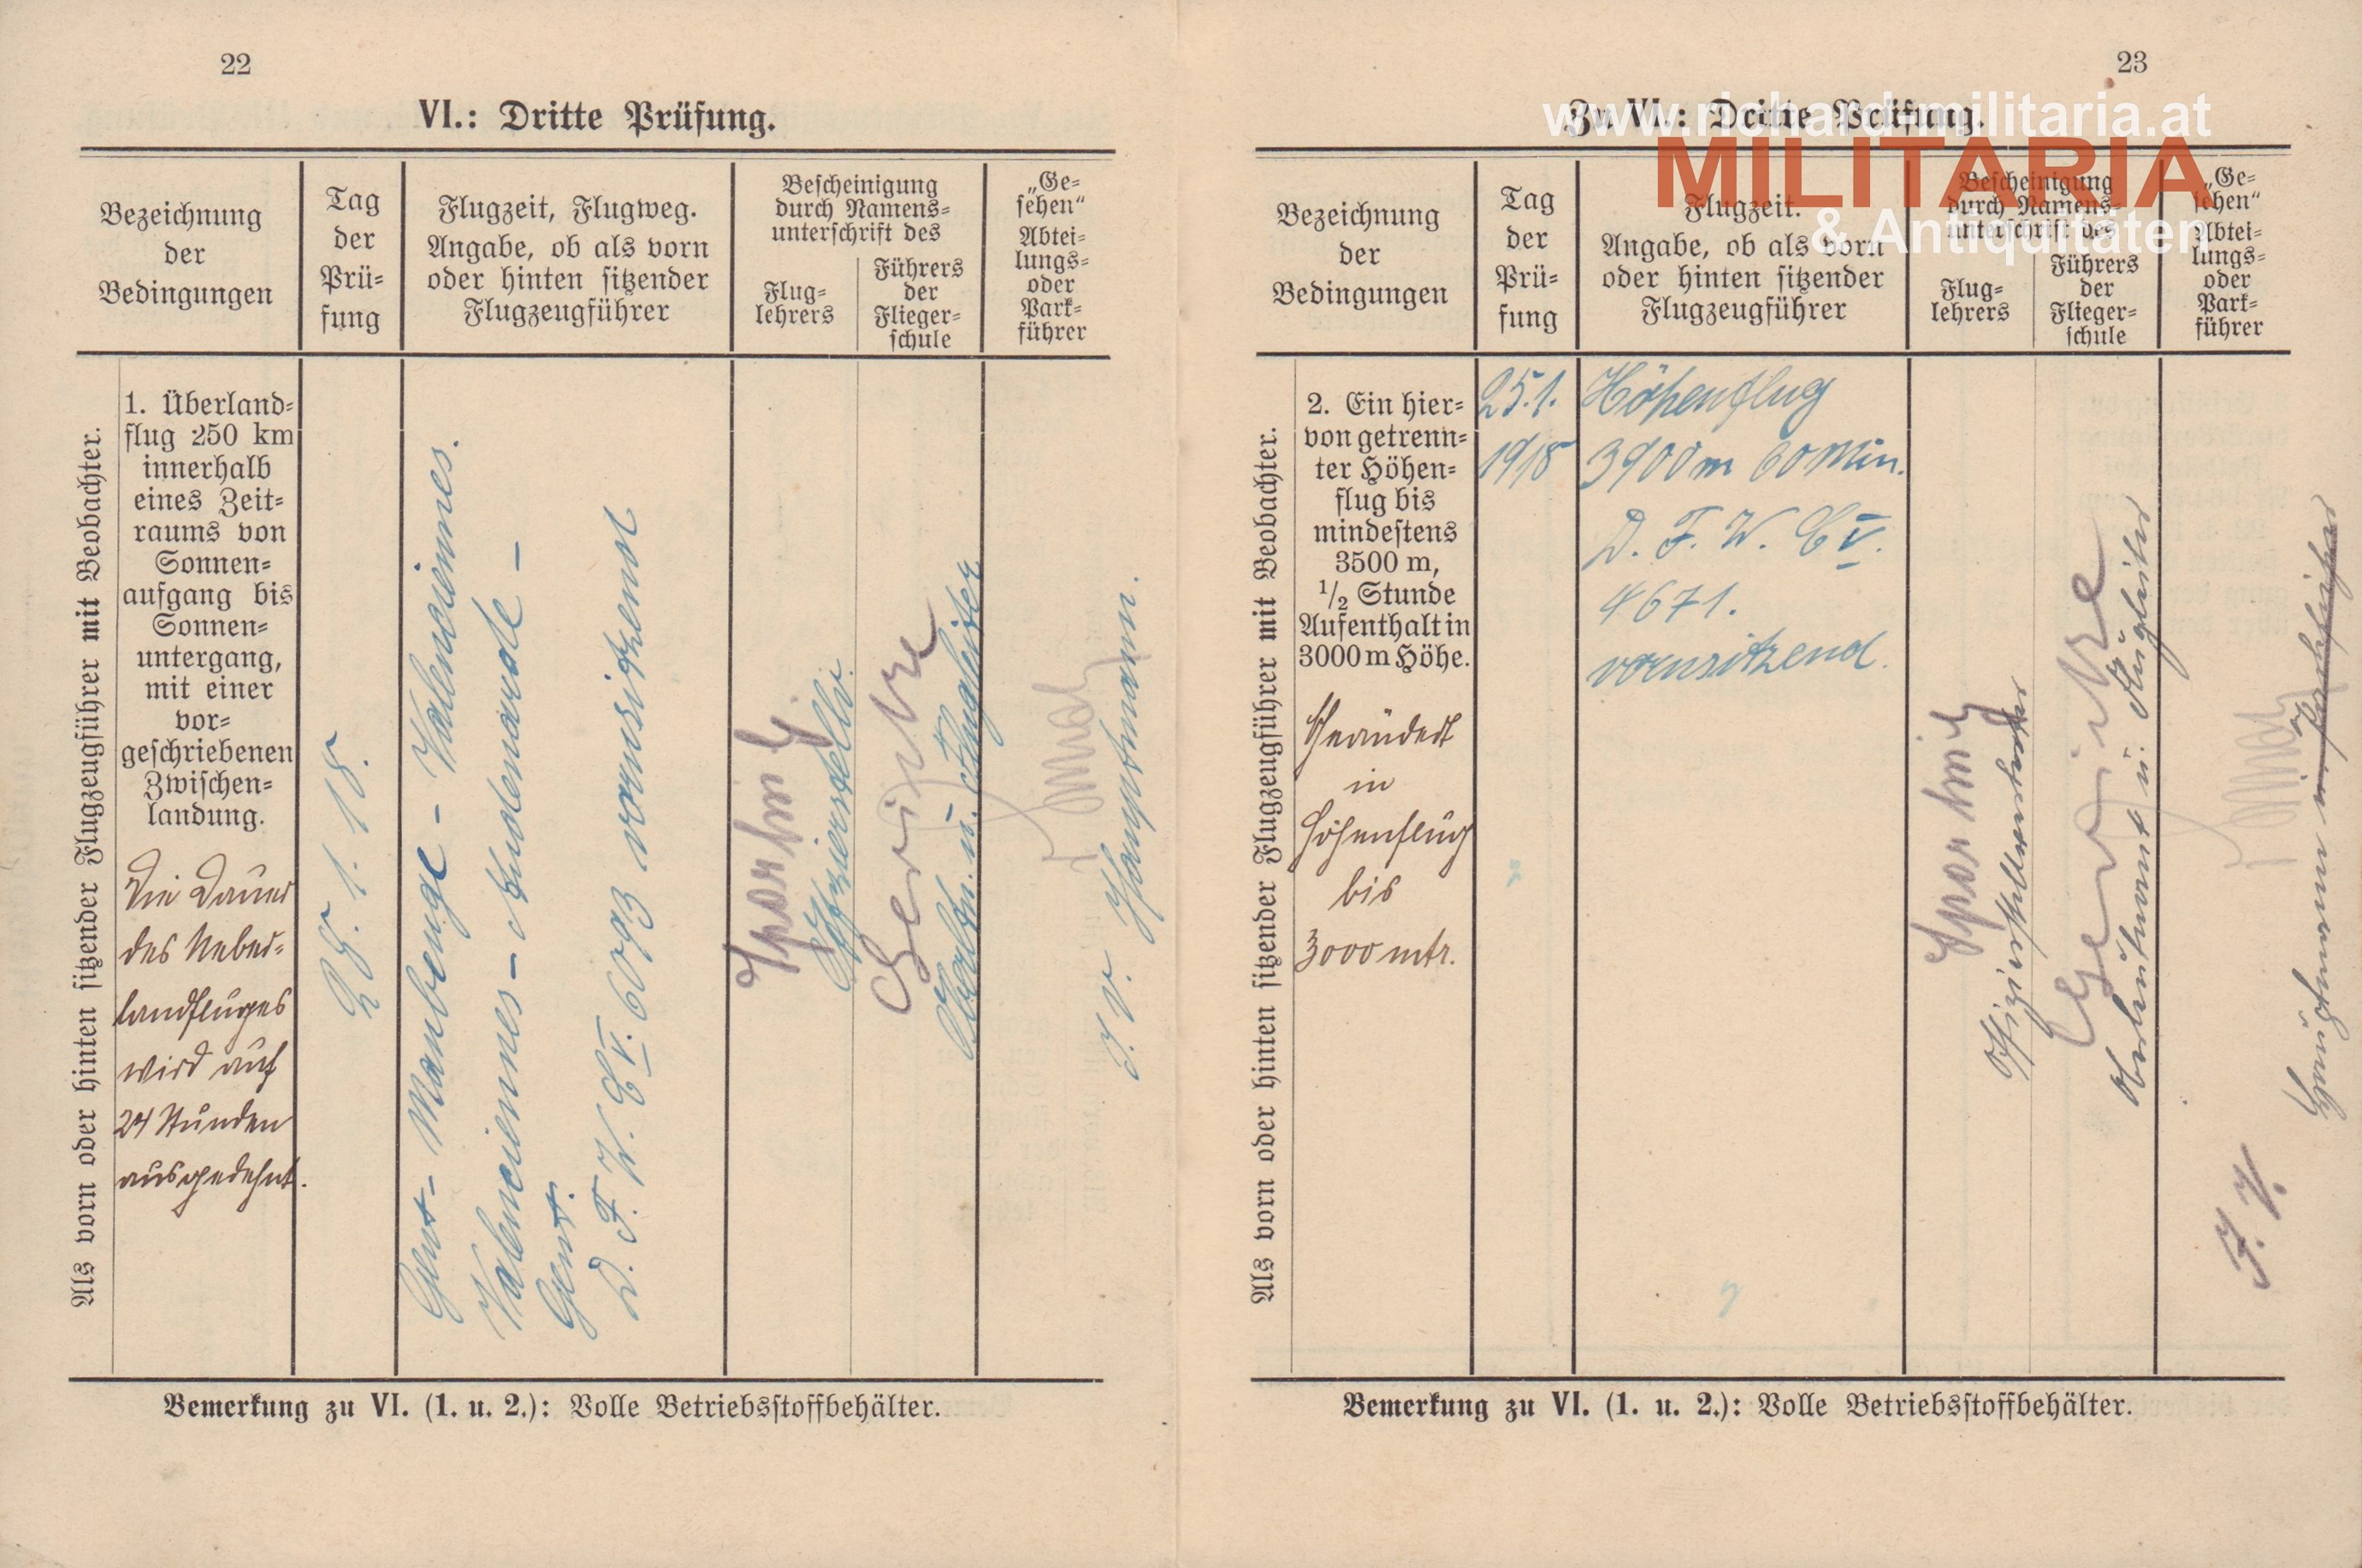 22
VI.: Dritte Prüfung.
Bezeichnung
der
Bedingungen
Tag
der
Prü=
fung
Flugzeit, Flugweg.
Angabe, ob als vorn
oder hinten sitzender
Flugzeugführer
Bescheinigung
durch Namens=
unterschrift des
Flug=
lehrers
Führers
der
Flieger=
schule
„Ge=
sehen“
Abtei=
lungs=
oder
Park=
führer
Als vorn oder hinten sitzender Flugzeugführer mit Beobachter.
1. Überland=
flug 250 km
innerhalb
eines Zeit=
raums von
Sonnen=
aufgang bis
Sonnen=
untergang,
mit einer
vor=
geschriebenen
Zwischen=
landung.
Die Dauer
des Ueber=
landfluges
wird auf
24 Stunden
ausgedehnt.
28. 1. 18.
Gent- Maubeuge - Valenciennes.
Valenciennes - Audenarde -
Gent.
D. F. W. C V. 6093 vornsitzend
Offizierstellv.
Oberltn. u. Flugleiter
J. V. Hauptmann.
Bemerkung zu VI. (1. u. 2.): Volle Betriebsstoffbehälter.
23
Zu VI.: Dritte Prüfung.
www.richard-militaria.at
MILITARIA
& Antiquitäten
Bezeichnung
der
Bedingungen
Tag
der
Prü=
fung
Flugzeit.
Angabe, ob als vorn
oder hinten sitzender
Flugzeugführer
Bescheinigung
durch Namens=
unterschrift des
Flug=
lehrers
Führers
der
Flieger=
schule
„Ge=
sehen“
Abtei=
lungs=
oder
Park=
führer
Als vorn oder hinten sitzender Flugzeugführer mit Beobachter.
2. Ein hier=
von getrenn=
ter Höhen=
flug bis
mindestens
3500 m,
1/2 Stunde
Aufenthalt in
3000 m Höhe.
Geändert
in
Höhenflug
bis
3000 mtr.
25.1.
1918
Höhenflug
3900 m 60 Min.
D. F. W. C V.
4671.
vornsitzend.
Offizierstellvertreter
Oberleutnant u. Flugleiter
J. V.
Hauptmann u. Parkführer
Bemerkung zu VI. (1. u. 2.): Volle Betriebsstoffbehälter.